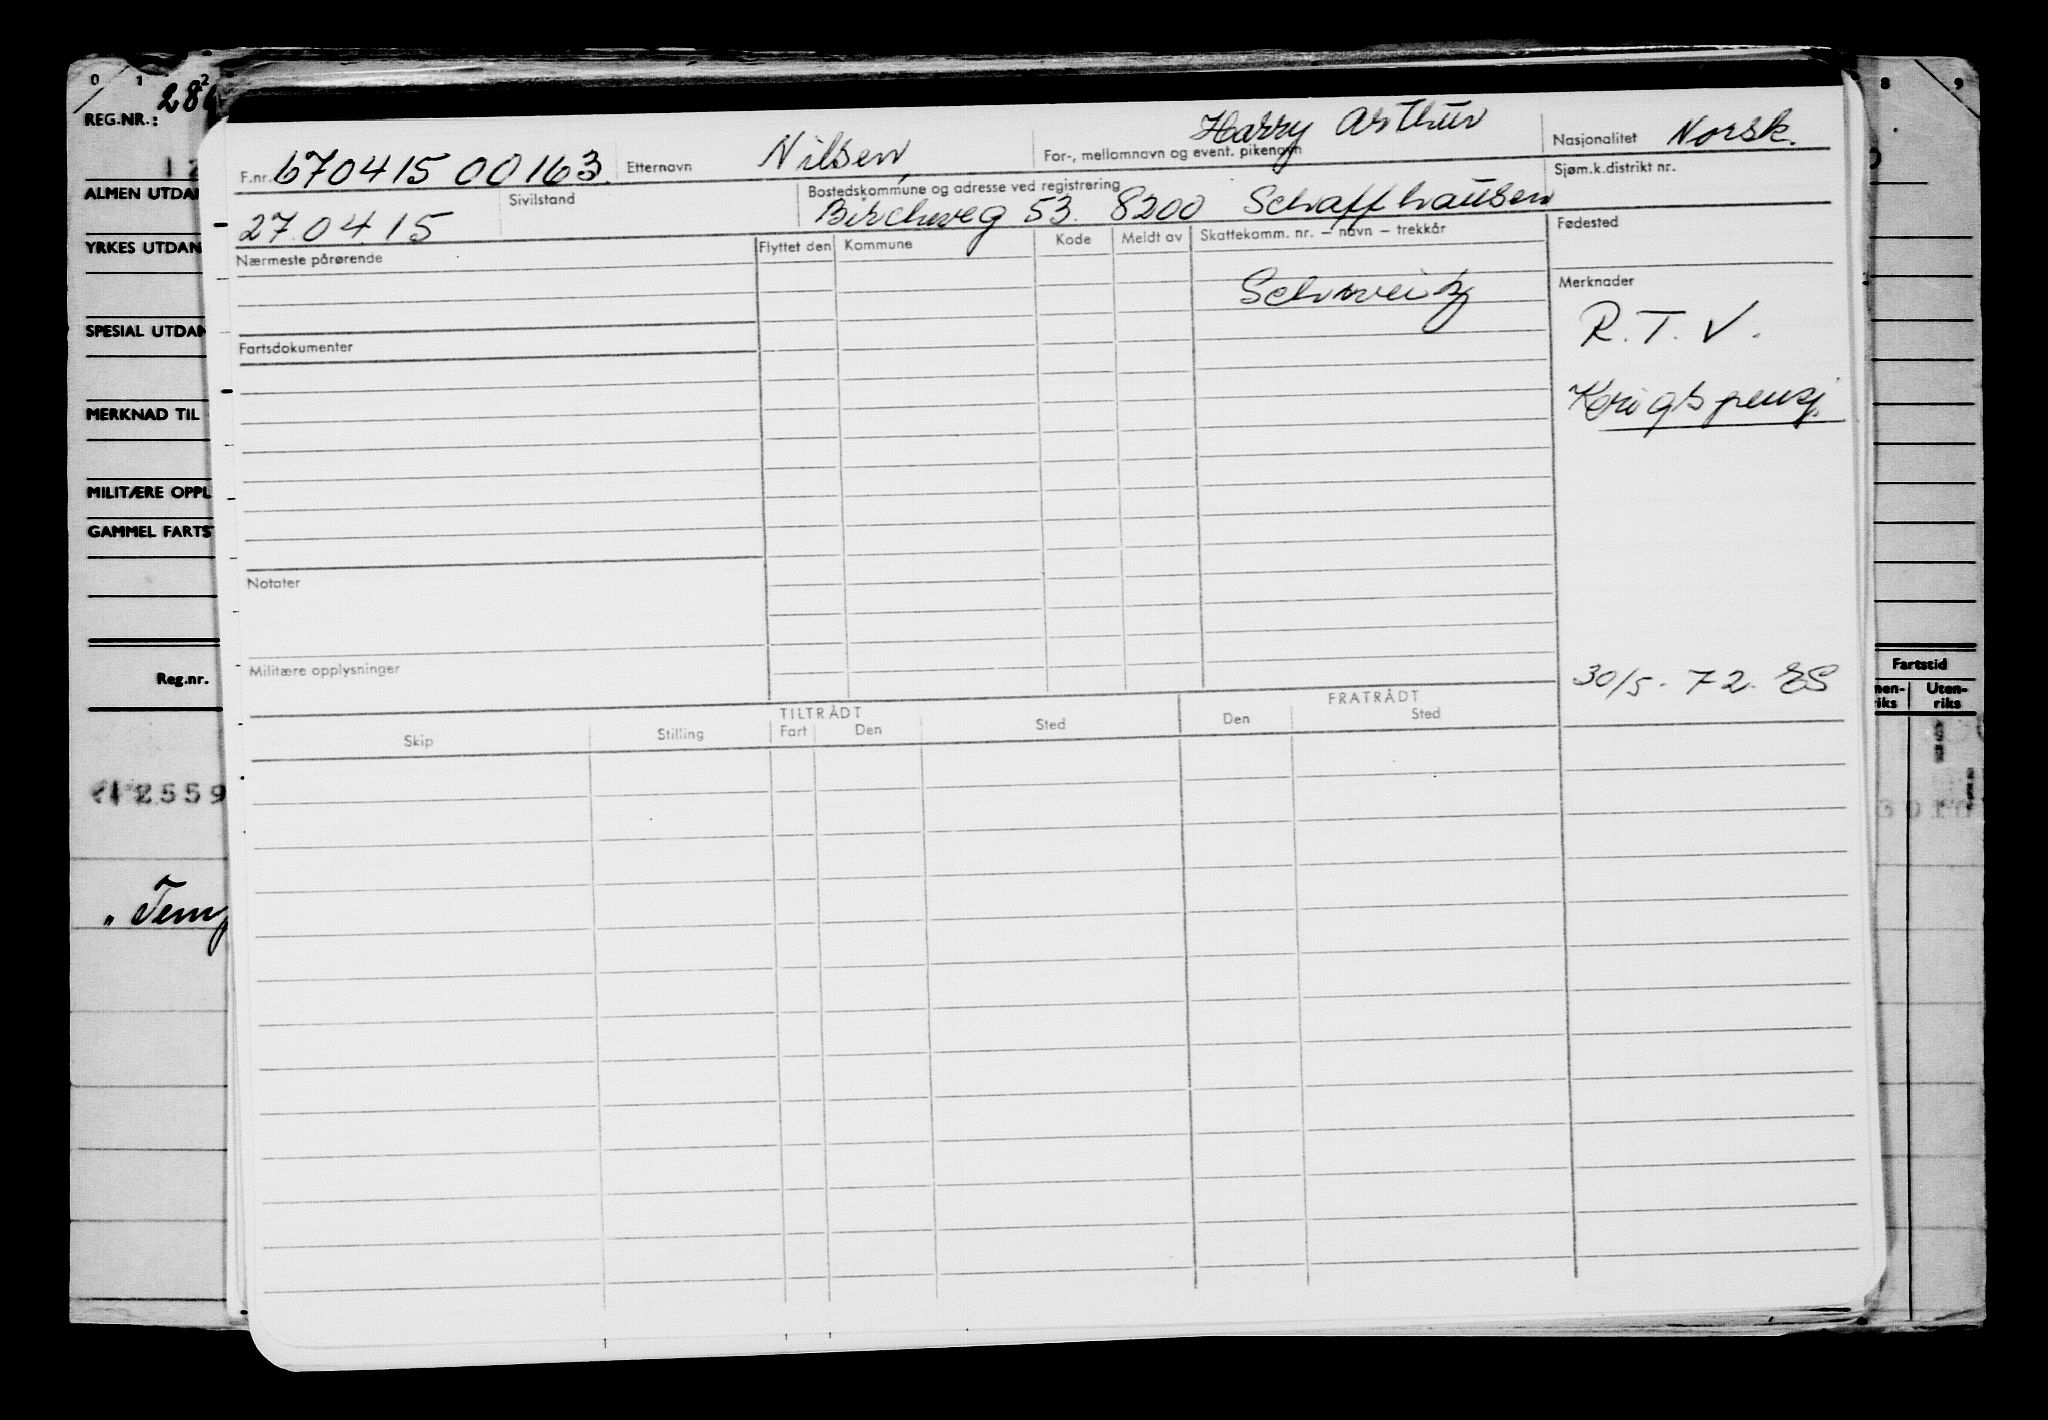 0 1 2 8 9
REG.NR.:
F.nr. 67041500163. Etternavn Nilsen, For-, mellomnavn og event. pikenavn Harry Arthur Nasjonalitet Norsk.
27.04.15 Sivilstand Bostedskommune og adresse ved registrering Bircheweg 53. 8200 Schaffhausen Sjøm.k.distrikt nr.
Nærmeste pårørende Flyttet den Kommune Kode Meldt av Skattekomm. nr. – navn – trekkår Fødested
Schweitz Merknader
R.T.V.
Fartsdokumenter
Krigspensj.
Notater
Militære opplysninger
30/5-72. ES
TILTRÅDT FRATRÅDT
Skip Stilling Fart Den Sted Den Sted
ALMEN UTDAN
YRKES UTDAN
SPESIAL UTDAN
MERKNAD TIL
MILITÆRE OPPL
GAMMEL FARTS
Reg.nr.
2559
"Temp
Fartstid
nen-riks Uten-riks